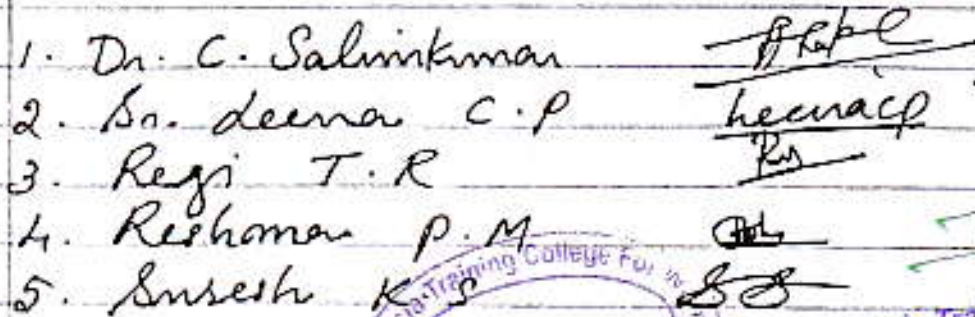 1. Dr. C. Salimkumar
2. Sr. Leena C.P Leenacp
3. Regi T.R
4. Reshoma P.M
5. Suresh K S
Training College For